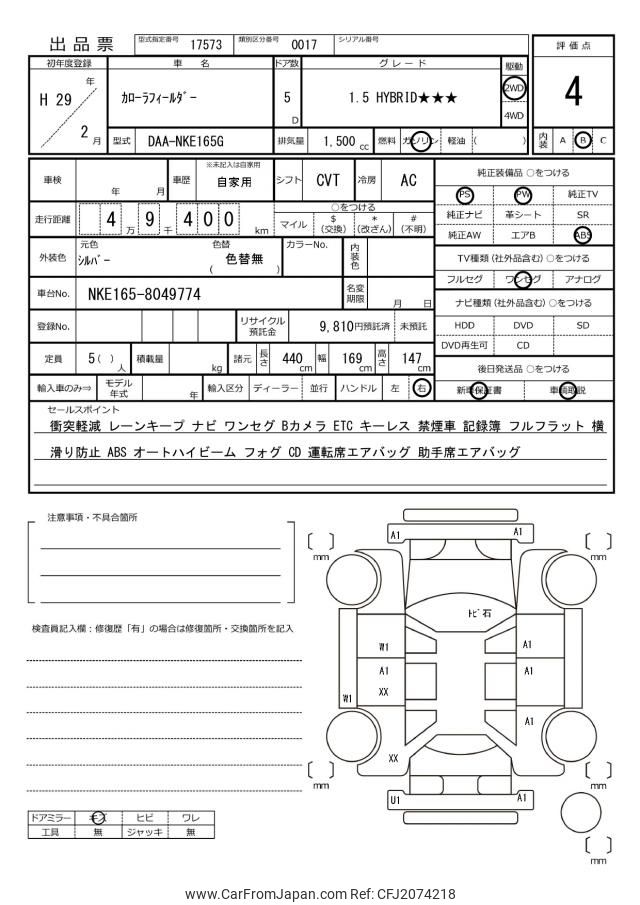 出品票
型式指定番号 17573 類別区分番号 0017 シリアル番号
評価点
4
内装 A B C
初年度登録 車名 ドア数 グレード 駆動
H 29 年 2 月
カローラフィールダー
5 D
1.5 HYBRID★★★
2WD
4WD
型式 DAA-NKE165G 排気量 1,500 cc 燃料 ガソリン 軽油 ( )
車検 年 月 車歴 ※未記入は自家用 自家用 シフト CVT 冷房 AC
走行距離 4 万 9 千 4 0 0 km
○をつける
マイル $ (交換) * (改ざん) # (不明)
外装色 元色 シルバー 色替 ( 色替無 ) カラーNo. 内装色
車台No. NKE165-8049774 名変期限 月 日
登録No. リサイクル預託金 9,810円預託済 未預託
定員 5 ( ) 人 積載量 kg 諸元 長さ 440 cm 幅 169 cm 高さ 147 cm
輸入車のみ⇒ モデル年式 年 輸入区分 ディーラー 並行 ハンドル 左 右
純正装備品 ○をつける
PS PW 純正TV
純正ナビ 革シート SR
純正AW エアB ABS
TV種類 (社外品含む) ○をつける
フルセグ ワンセグ アナログ
ナビ種類 (社外品含む) ○をつける
HDD DVD SD
DVD再生可 CD
後日発送品 ○をつける
新車保証書 車輌取説
セールスポイント
衝突軽減 レーンキープ ナビ ワンセグ Bカメラ ETC キーレス 禁煙車 記録簿 フルフラット 横
滑り防止 ABS オートハイビーム フォグ CD 運転席エアバッグ 助手席エアバッグ
注意事項・不具合箇所
検査員記入欄：修復歴「有」の場合は修復箇所・交換箇所を記入
ドアミラー キズ ヒビ ワレ
工具 無 ジャッキ 無
A1 A1
[ ] mm [ ] mm
トビ石
W1 A1
A1 A1
XX
W1
A1
XX
[ ] mm [ ] mm
U1 A1
[ ] mm
www.CarFromJapan.com Ref: CFJ2074218